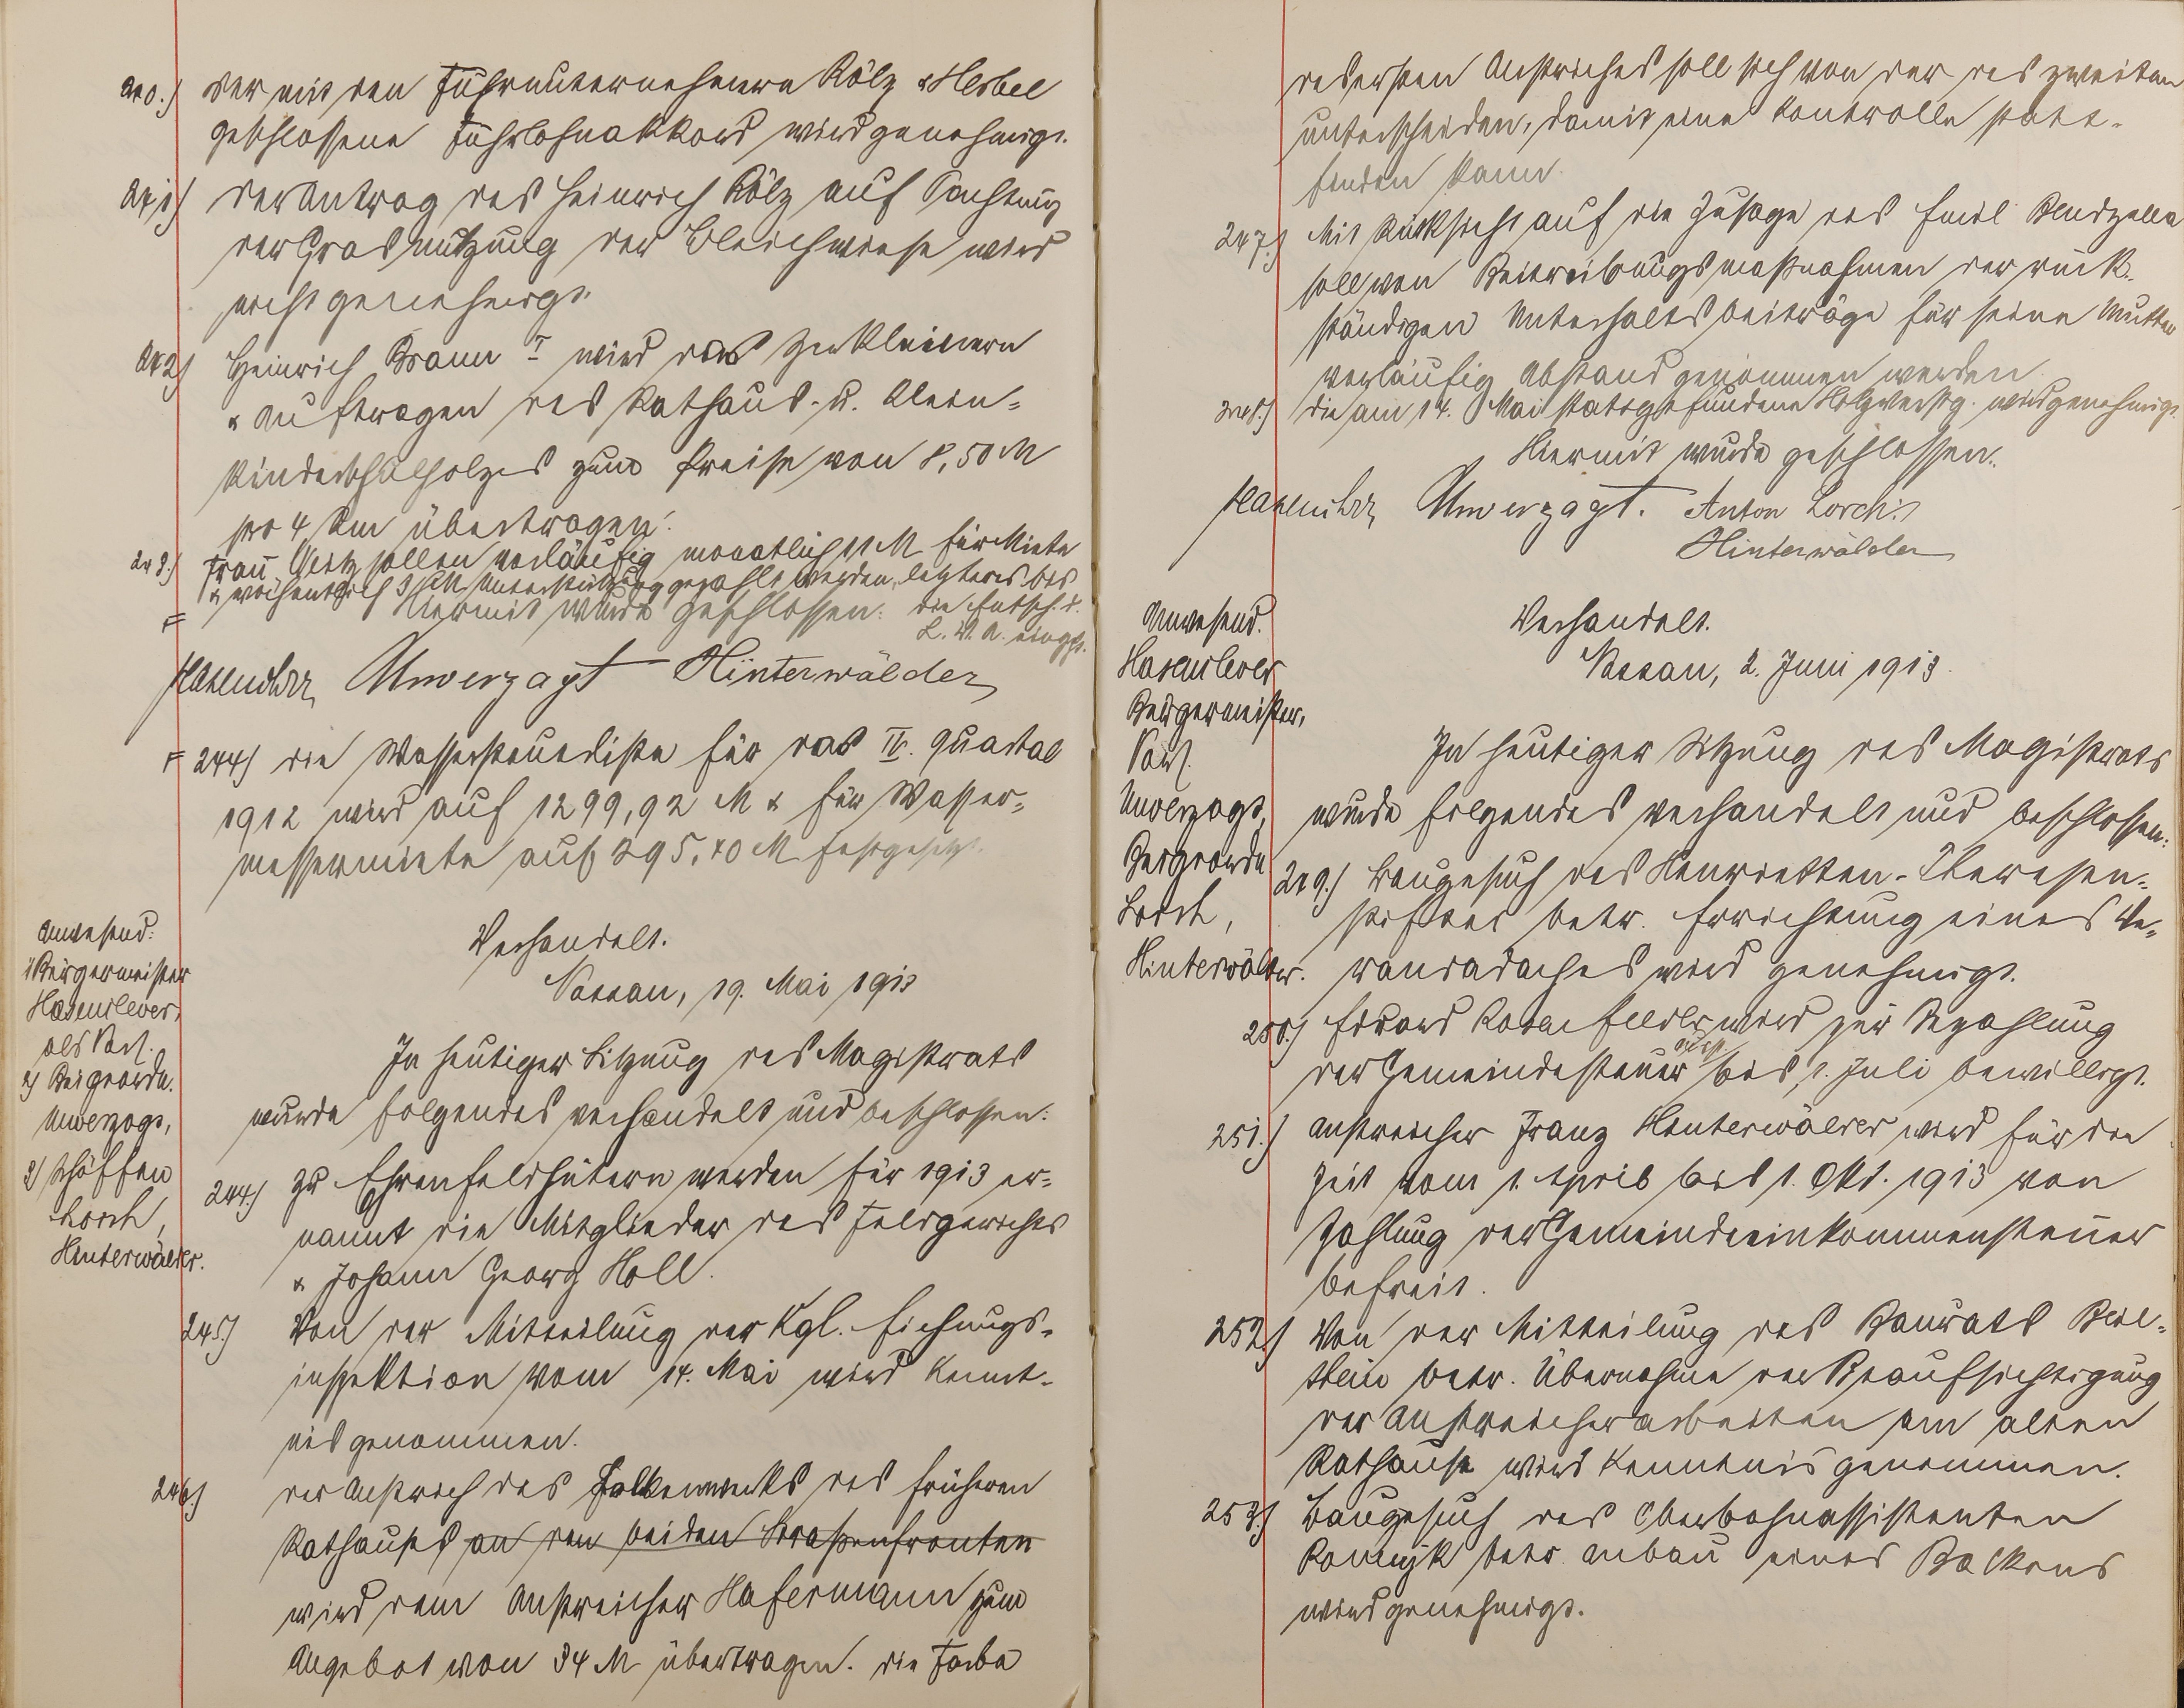 240.) Der mit den Fuhrunternehmern Kölz & Herbel
geschlossene Fuhrlohnakkord wird genehmigt.
241) Der Antrag des Heinrich Kölz auf Pachtung
der Grasnutzung der Bleichwiese wird
nicht genehmigt.
242) Heinrich Braun I wird das Zerkleinern
& Auftragen des Rathaus- u. Klein-
kinderschulholzes zum Preise von 8,50 M
pro 4 Rm übertragen.
243.) Frau Weitz sollen vorläufig monatlich 11 M für Miete
& wöchentlich 3 M Unterstützung gezahlt werden, letzteres bis
Hiermit wurde geschlossen. die Entsch. d.
L. V. A. eingeht.
Hasenclever Unverzagt Hinterwälder
F 244) Die Wassersteuerliste für das IV. Quartal
1912 wird auf 1299,92 M & für Wasser-
messermiete auf 295,40 M festgesetzt.
Anwesend:
1) Bürgermeister
Hasenclever,
als Vors.
2) Beigeordn.
Unverzagt,
3) Schöffen
Lorch,
Hinterwälder.
Verhandelt.
Nassau, 19. Mai 1913
In heutiger Sitzung des Magistrats
wurde folgendes verhandelt und beschlossen:
244.) Zu Ehrenfeldhütern werden für 1913 er-
nannt die Mitglieder des Feldgerichts
& Johann Georg Holl.
245.) Von der Mitteilung der Kgl. Eichungs-
inspektion vom 14. Mai wird Kennt-
nis genommen.
246.) Der Anstrich des Falkenwerks des früheren
Rathauses an den beiden Straßenfronten
wird dem Anstreicher Hafermann zum
Angebot von 34 M übertragen. Die Farbe
des ersten Anstriches soll sich von der des zweiten
unterscheiden, damit eine Kontrolle statt-
finden kann.
247.) Mit Rücksicht auf die Zusage des Emil
soll von Beitreibungsmaßnahmen der rück-
ständigen Unterhaltsbeiträge für seine Mutter
vorläufig Abstand genommen werden.
248.) Die am 14. Mai stattgefundene Holzversteig. wird genehmigt.
Hiermit wurde geschlossen.
Hasenclever Unverzagt. Anton Lorch.
Hinterwälder
Anwesend.
Hasenclever
Bürgermeister,
Vors.
Unverzagt,
Beigeordn.
Lorch,
Hinterwälder.
Verhandelt.
Nassau, 2. Juni 1913.
In heutiger Sitzung des Magistrats
wurde folgendes verhandelt und beschlossen:
249.) Baugesuch des Henrietten-Theresen-
stiftes betr. Errichtung eines Ve-
randadaches wird genehmigt.
250.) Eduard Rosenfelder wird zur Bezahlung
der Gemeindesteuer bis 1. Juli bewilligt.
251.) Anstreicher Franz Hinterwälder wird für die
Zeit vom 1. April bis 1. Okt. 1913 von
Zahlung der Gemeindeeinkommensteuer
befreit.
252.) Von der Mitteilung des Baurats Beil-
stein betr. Übernahme der Beaufsichtigung
der Anstreicherarbeiten am alten
Rathause wird Kenntnis genommen.
253.) Baugesuch des Oberbahnassistenten
betr. Anbau eines Balkons
wird genehmigt.